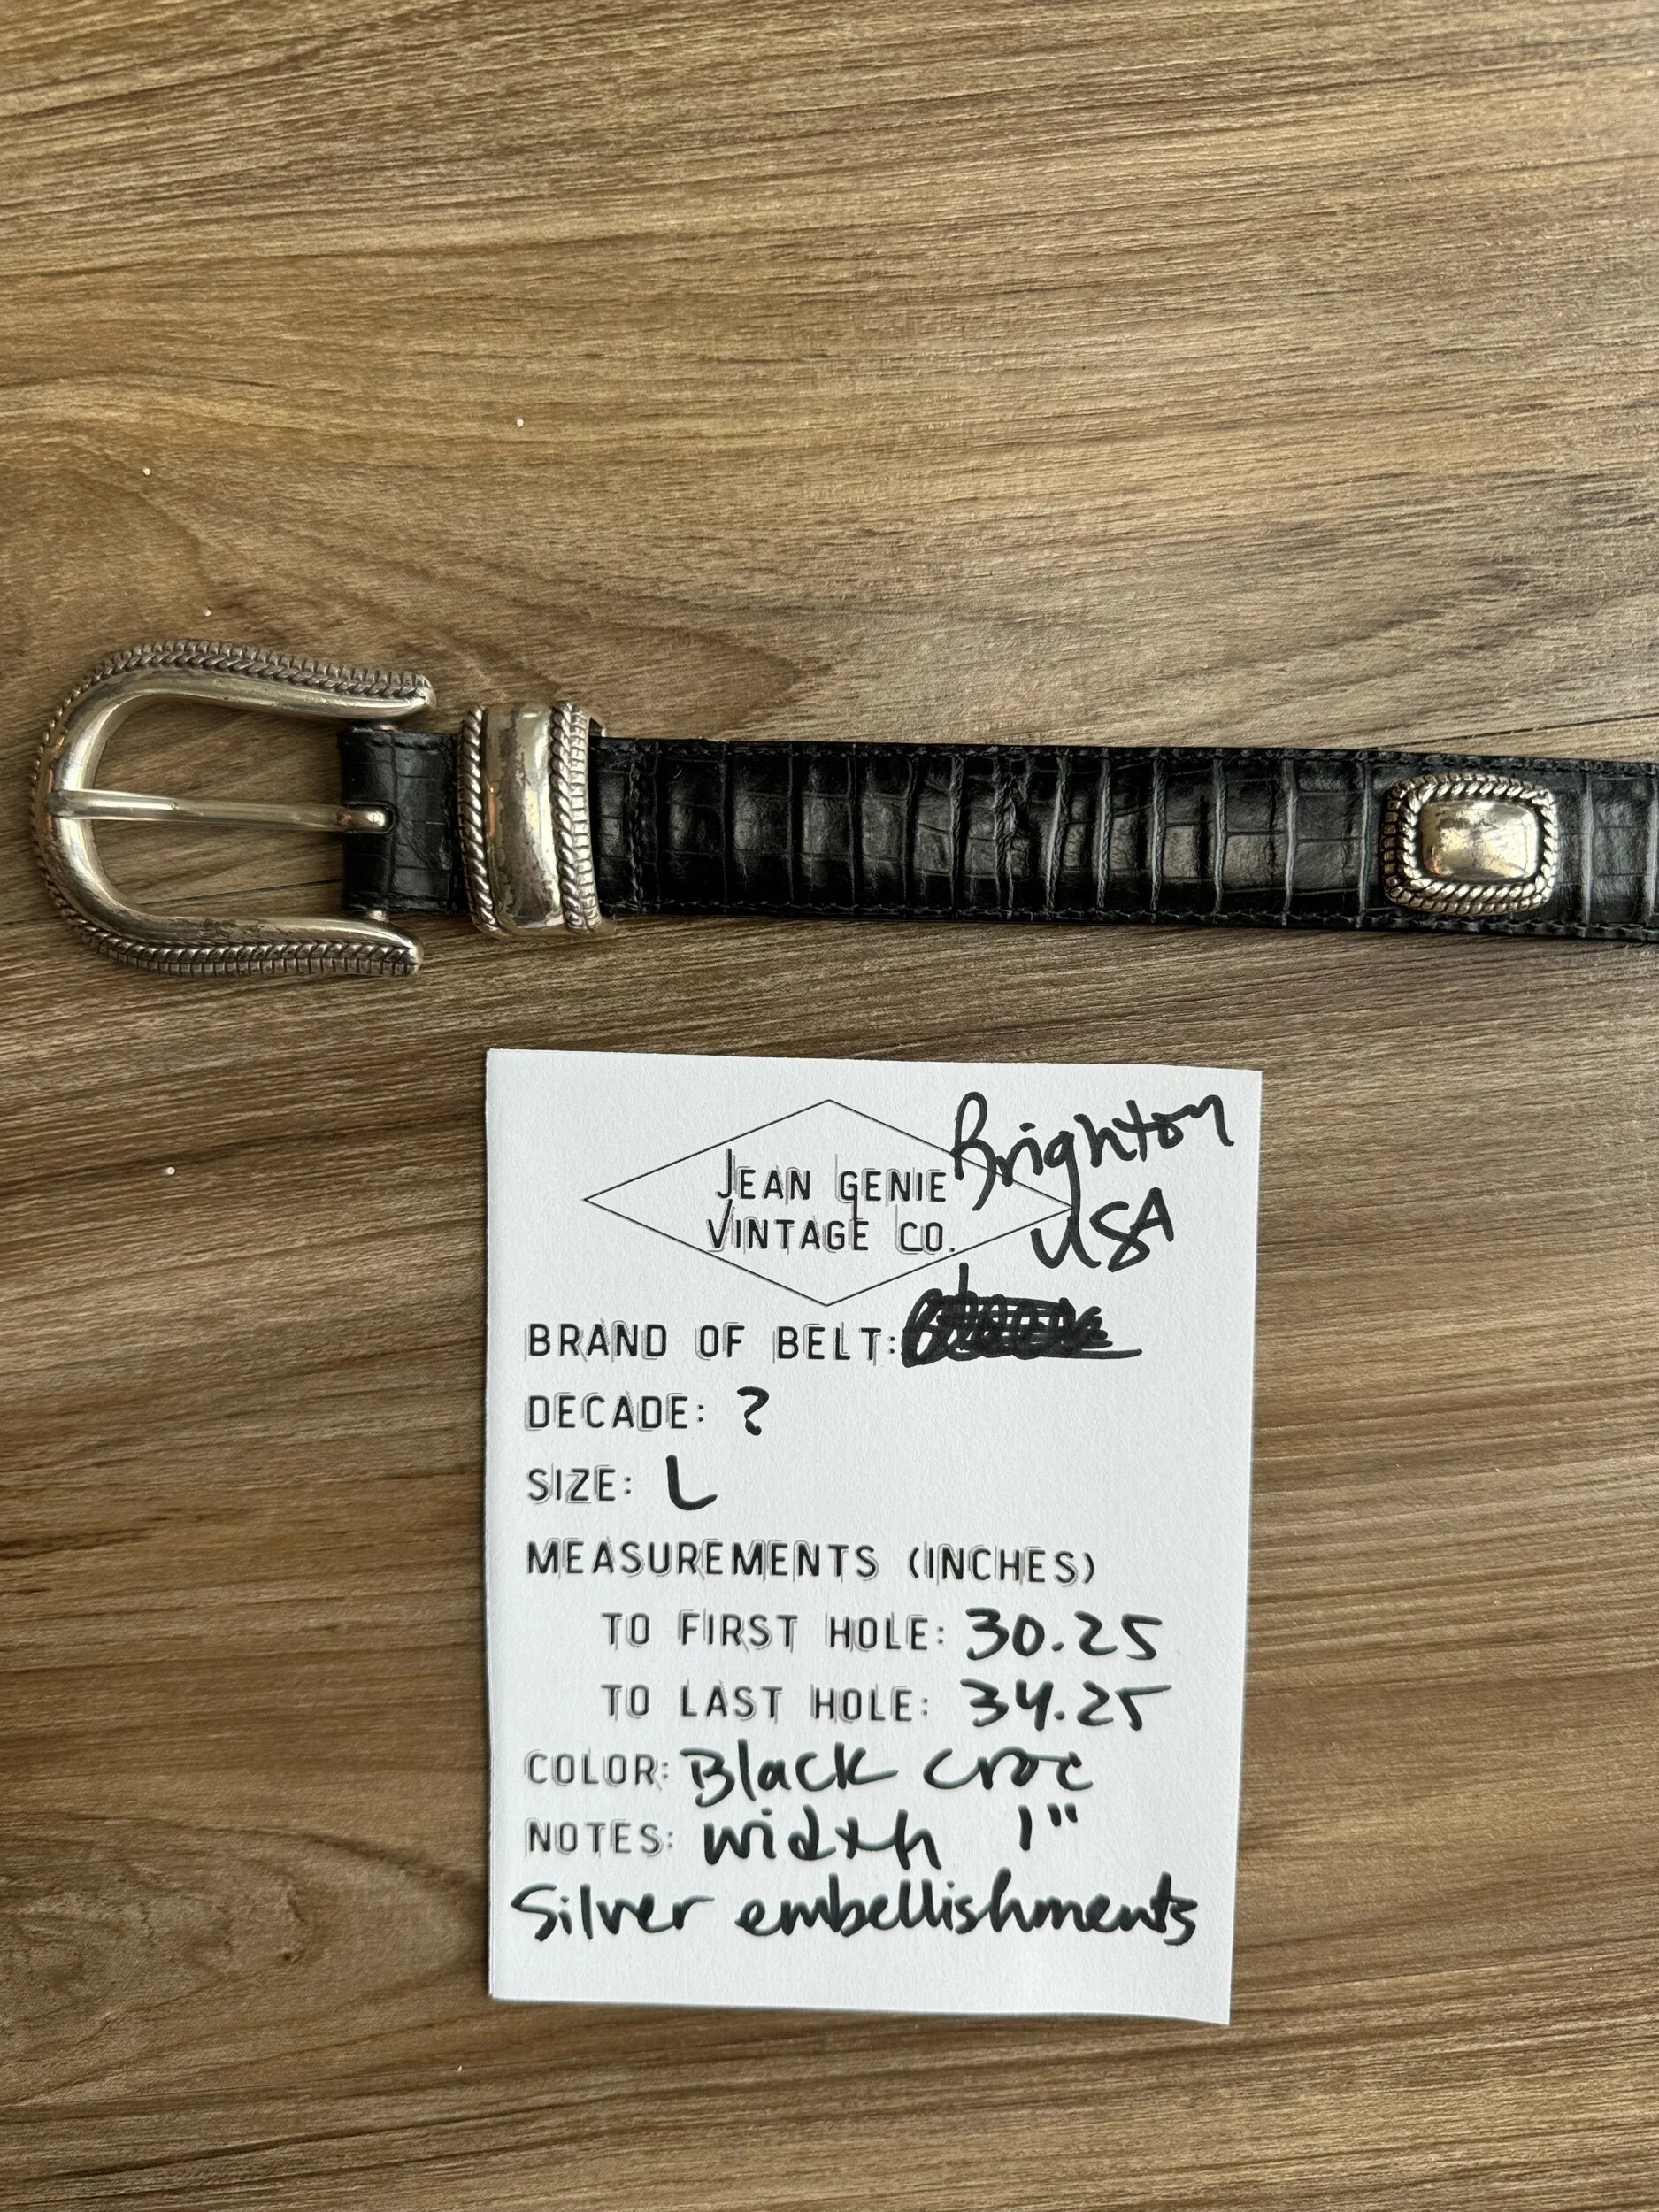 JEAN GENIE
VINTAGE CO.
Brighton
USA
BRAND OF BELT:
DECADE: ?
SIZE: L
MEASUREMENTS (INCHES)
TO FIRST HOLE: 30.25
TO LAST HOLE: 34.25
COLOR: Black croc
NOTES: width 1"
Silver embellishments